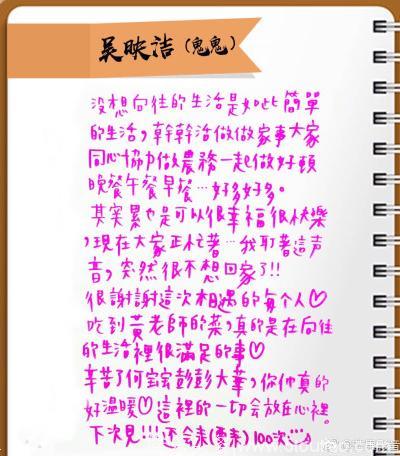 吴映洁（鬼鬼）
没想向往的生活是如此簡單
的生活,幹幹活做做家事大家
同心協力做農務一起做好頓
晚餐午餐早餐…好多好多。
其实累也是可以很幸福很快樂
,現在大家正忙著…我耵著這声
音,突然很不想回家了!!
很謝謝這次相遇的每个人♡
吃到黃老師的菜,真的是在向往
的生活裡很滿足的事♡
辛苦了何宝宝彭彭大華,你们真的
好温暖♡這裡的一切会放在心裡。
下次見!!!还会来(要来)100次